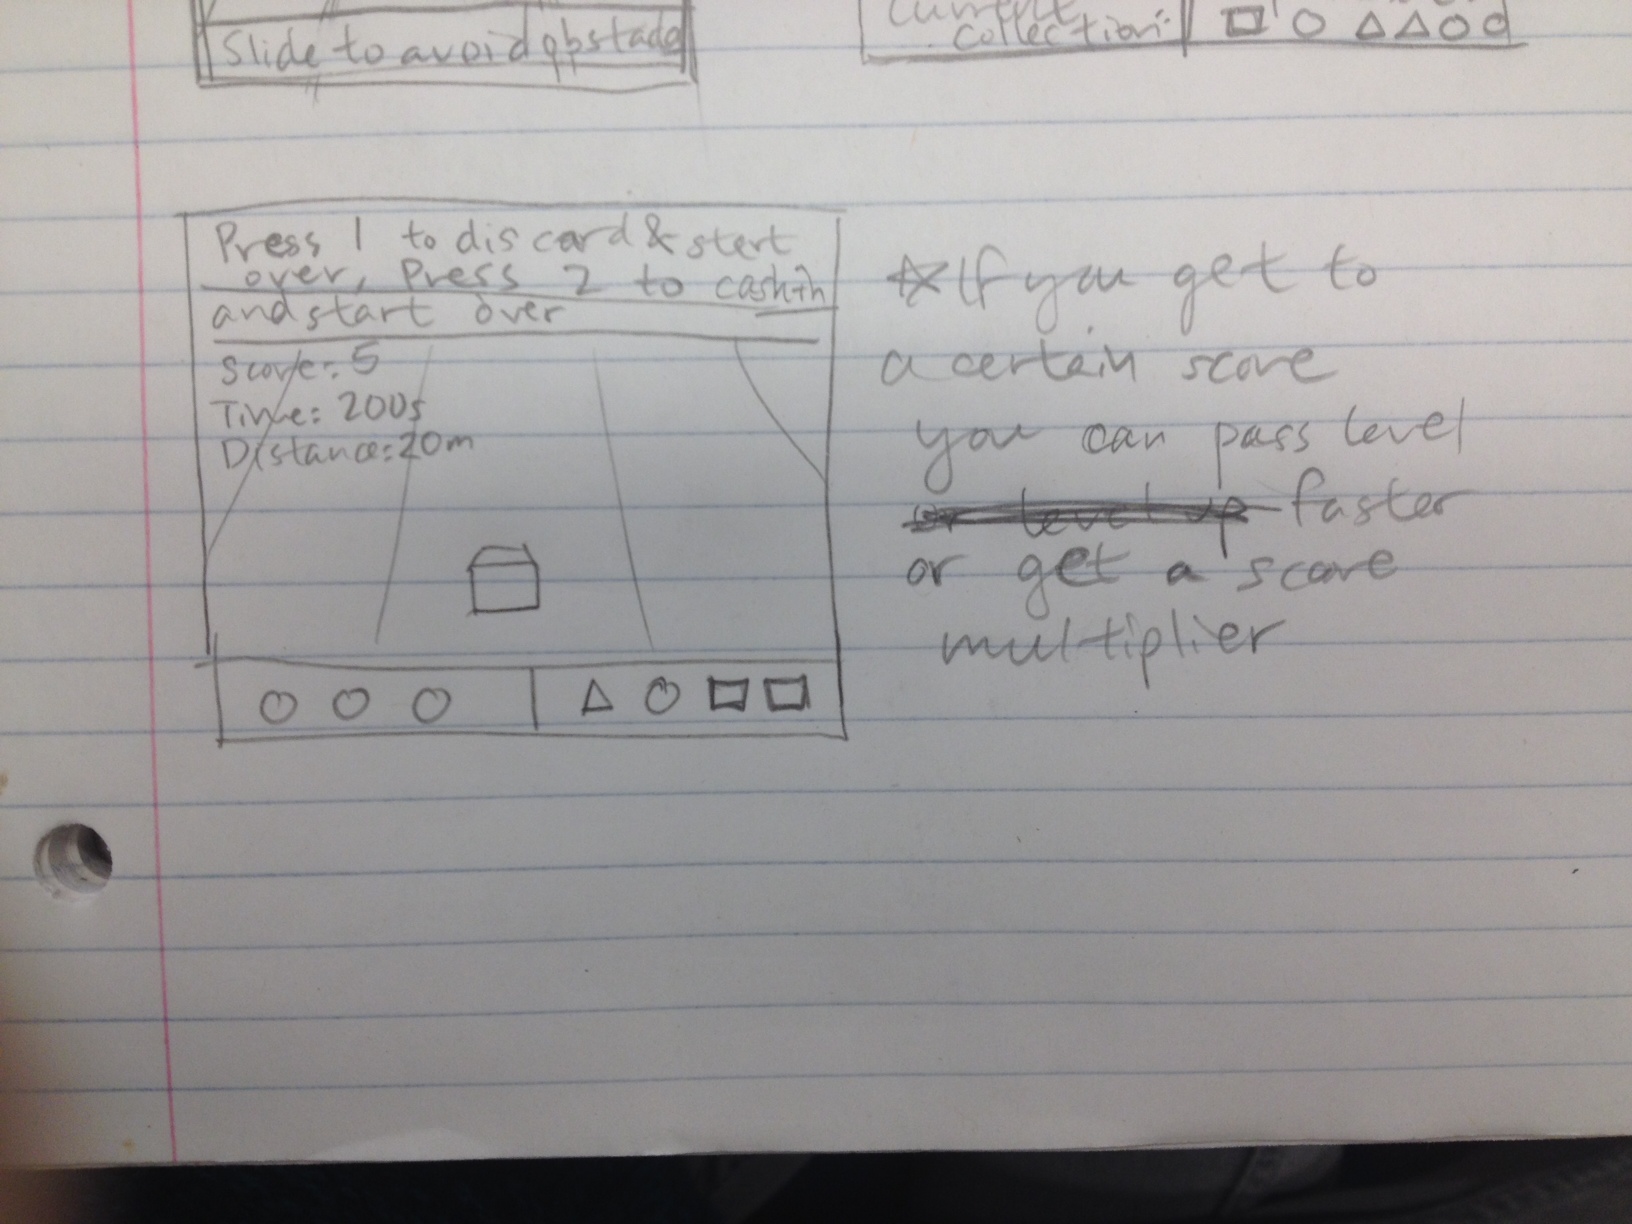 Slide to avoid obstacle
Current
collection:
Press 1 to discard & start
over, Press 2 to cash in
and start over
Score: 5
Time: 200s
Distance: 20m
*If you get to
a certain score
you can pass level
faster
or get a score
multiplier